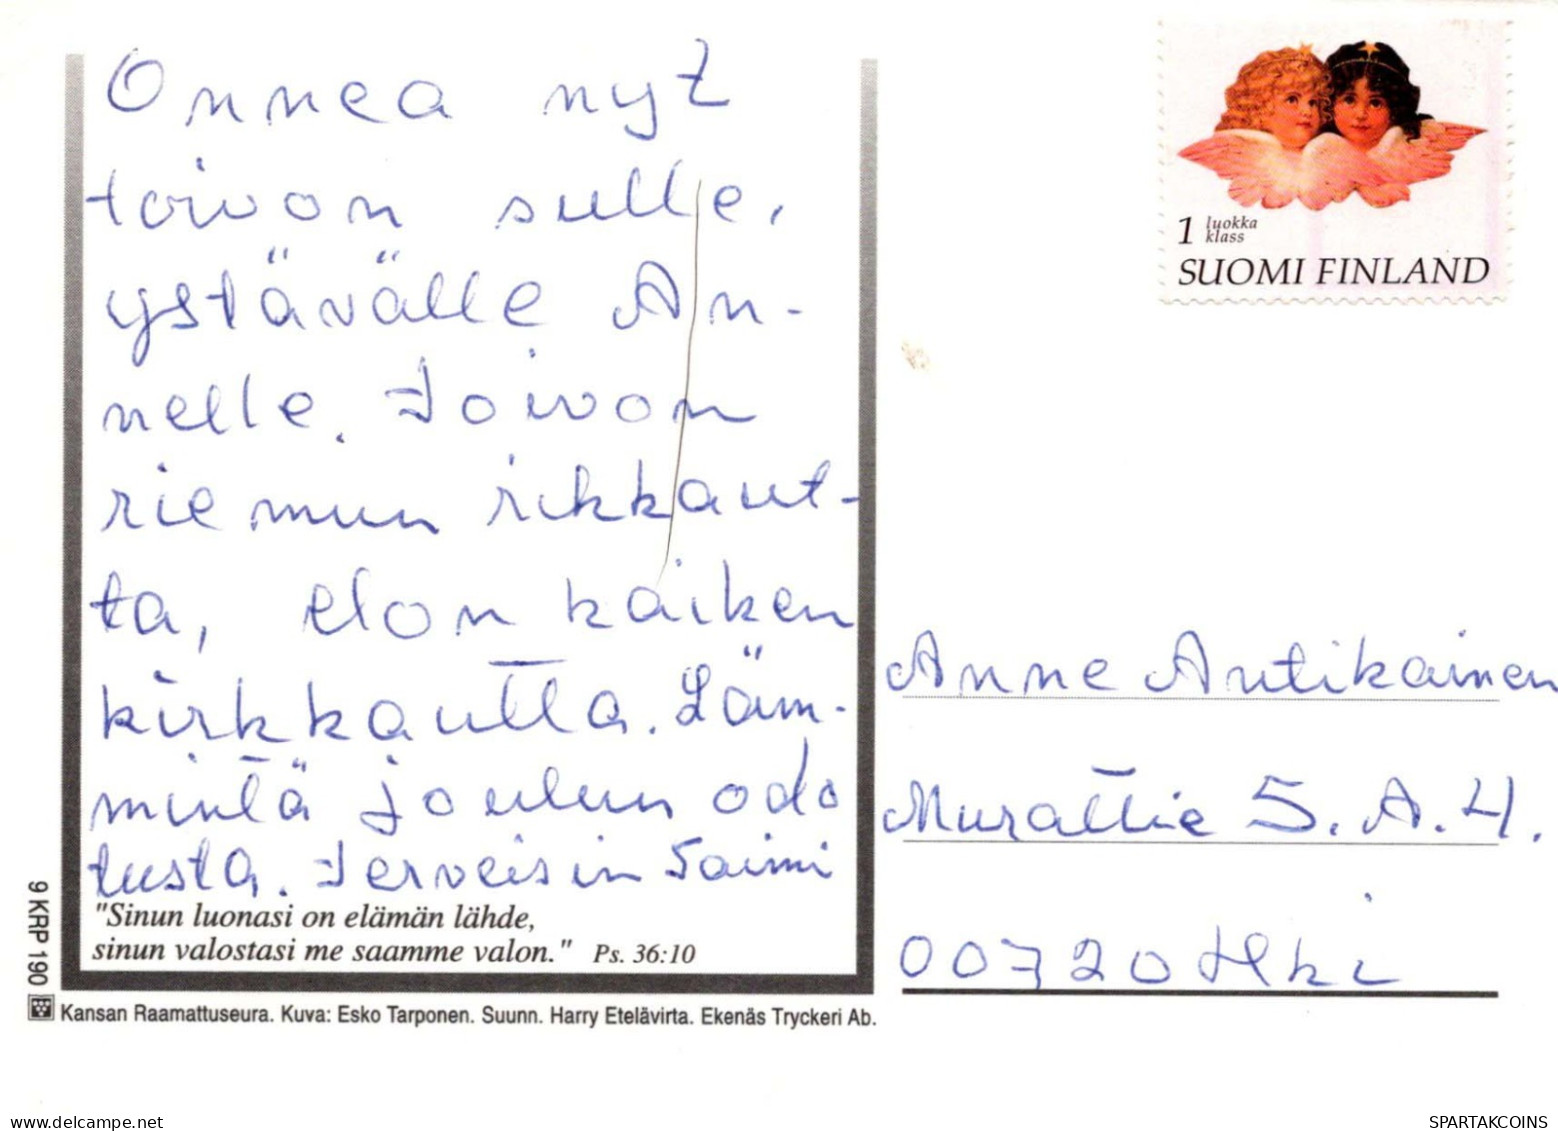 Onnea nyt
toivon sulle,
ystävälle An-
nelle. Toivon
riemun rikkaut-
ta, elon kaiken
kirkkautta. Läm-
mintä joulun odo
tusta. Terveisin Saimi
"Sinun luonasi on elämän lähde,
sinun valostasi me saamme valon." Ps. 36:10
9 KRP 190
Kansan Raamattuseura. Kuva: Esko Tarponen. Suunn. Harry Etelävirta. Ekenäs Tryckeri Ab.
1 luokka
klass
SUOMI FINLAND
Anne Antikainen
Murattie 5. A. 4.
00720 Hki
delcampe.net
SPARTAKCOINS